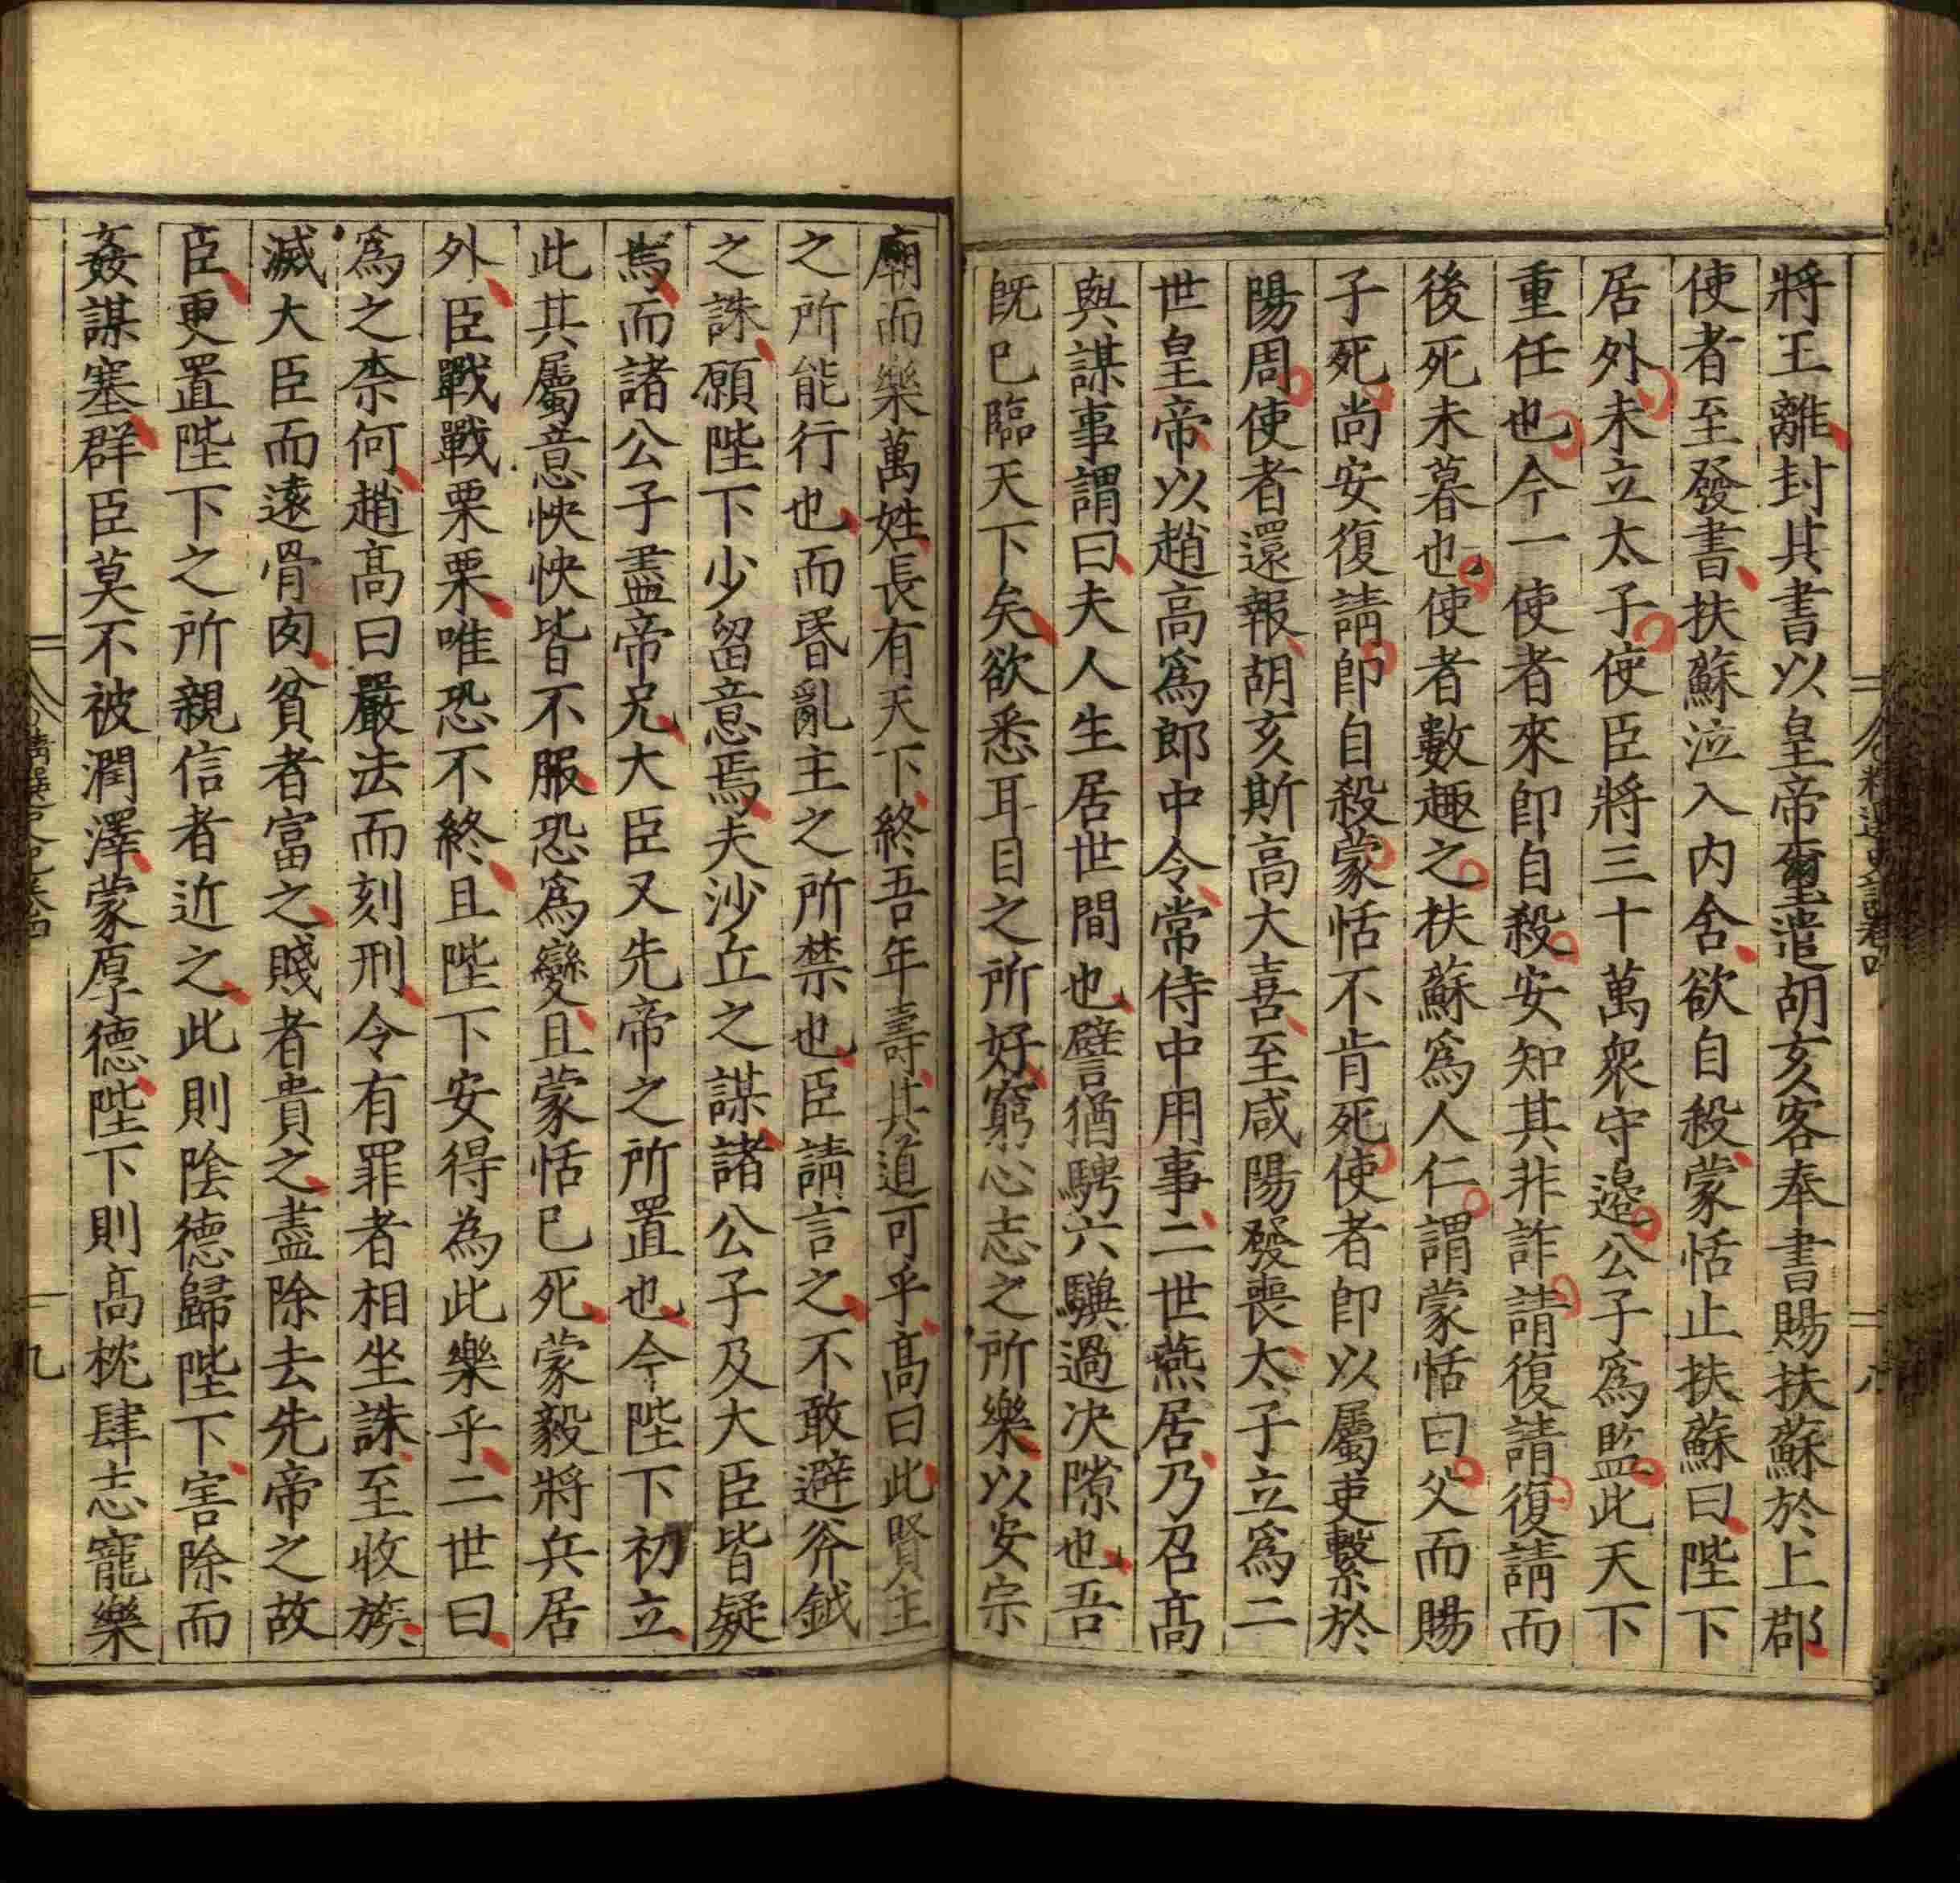 精選史記卷四
八
將王離封其書以皇帝璽遣胡亥客奉書賜扶蘇於上郡
使者至發書扶蘇泣入内舍欲自殺蒙恬止扶蘇曰陛下
居外未立太子使臣將三十萬衆守邊公子爲監此天下
重任也今一使者來即自殺安知其非詐請復請復請而
後死未暮也使者數趣之扶蘇爲人仁謂蒙恬曰父而賜
子死尚安復請即自殺蒙恬不肯死使者即以屬吏繫於
陽周使者還報胡亥斯高大喜至咸陽發喪太子立爲二
世皇帝以趙高爲郎中令常侍中用事二世燕居乃召高
與謀事謂曰夫人生居世間也譬猶騁六驥過决隙也吾
既已臨天下矣欲悉耳目之所好窮心志之所樂以安宗
廟而樂萬姓長有天下終吾年壽其道可乎高曰此賢主
之所能行也而昏亂主之所禁也臣請言之不敢避斧鉞
之誅願陛下少留意焉夫沙丘之謀諸公子及大臣皆疑
焉而諸公子盡帝兄大臣又先帝之所置也今陛下初立
此其屬意怏怏皆不服恐爲變且蒙恬已死蒙毅將兵居
外臣戰戰栗栗唯恐不終且陛下安得為此樂乎二世曰
爲之柰何趙高曰嚴法而刻刑令有罪者相坐誅至收族
滅大臣而遠骨肉貧者富之賤者貴之盡除去先帝之故
臣更置陛下之所親信者近之此則陰德歸陛下害除而
姦謀塞群臣莫不被潤澤蒙厚德陛下則高枕肆志寵樂
九